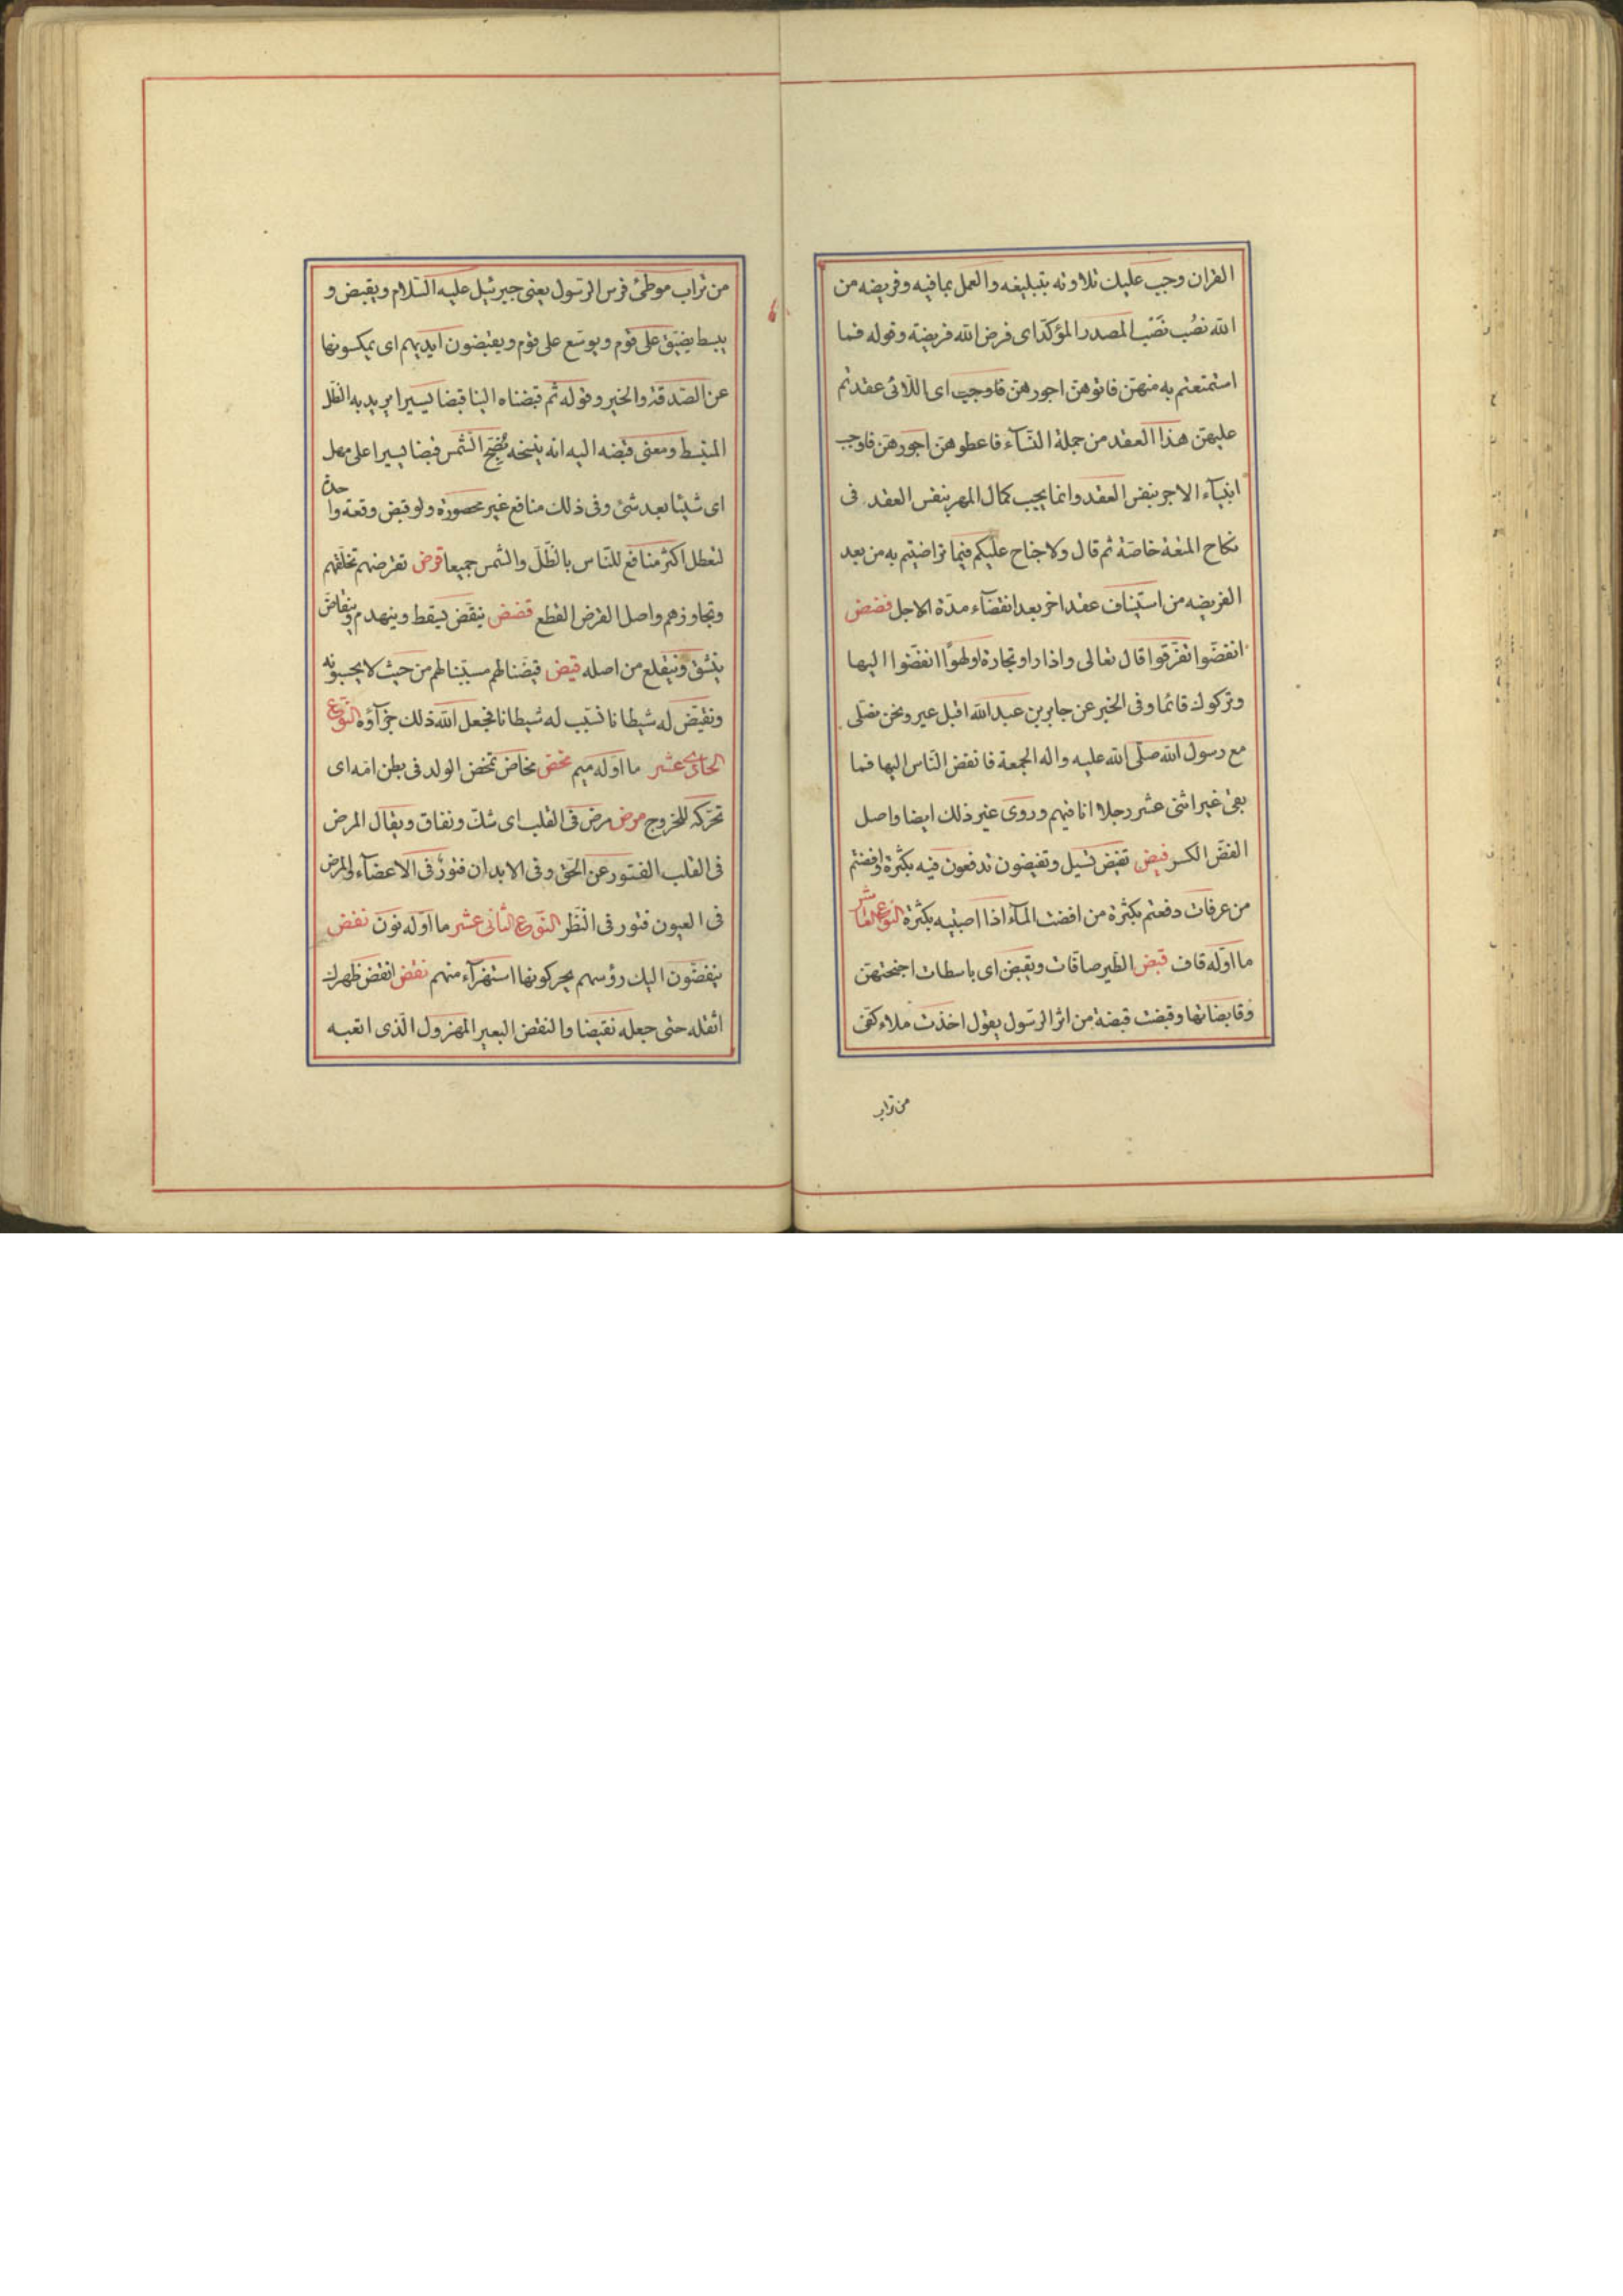 القران وجب عليك تلاوته بتبليغه والعمل بما فيه وفريضه من
الله نصُب نَصْب المصدر المؤكّد اى فرض الله فريضة وقوله فما
استمتعتم به منهنّ فاتوهنّ اجورهنّ فاوجب اى اللّاتى عقدتم
عليهنّ هذا العقد من جملة النّسآء فاعطوهنّ اجورهنّ فاوجب
ايتآء الاجر بنفس العقد وانما يجب كمال المهر بنفس العقد فى
نكاح المتعة خاصّة ثم قال ولا جناح عليكم فيما تراضيتم به من بعد
الفريضه من استيناف عقد اخر بعد انقضآء مدّة الاجل فضض
انفضّوا تفرّقوا قال تعالى واذا راو تجارة او لهوًا انفضّوا اليها
وتركوك قائما وفى الخبر عن جابر بن عبد الله اقبل عير ونحن نصلّى
مع رسول الله صلّى الله عليه واله الجمعة فانفض النّاس اليها فما
بقى غير اثنى عشر رجلا انا فيهم وروى غير ذلك ايضا واصل
الفضّ الكسر فيض تفيض تسيل وتفيضون تدفعون فيه بكثرة وافضتم
من عرفات دفعتم بكثرة من افضت المآء اذا اصببته بكثرة النّوع العاشر
ما اوّله قاف قبض الطّير صافّات ويقبضن اى باسطات اجنحتهنّ
وقابضاتها وقبضت قبضة من اثر الرّسول يقول اخذت ملاء كفّى
من تراب
من تراب موطئ فرس الرّسول يعنى جبرئيل عليه السّلام ويقبض و
يبسط يضيّق على قوم ويوسّع على قوم ويقبضون ايديهم اى يمسكونها
عن الصّدقة والخير وقوله ثم قبضناه الينا قبضا يسيرا يريد به الظّل
المنبسط ومعنى قبضه اليه انه ينسخه بضحّ الشّمس قبضا يسيرا على مهل
اى شيئا بعد شئ وفى ذلك منافع غير محصورة ولو قبض دفعة واحدة
لتعطل اكثر منافع للنّاس بالظّلّ والشّمس جميعا قرض تقرضهم تخلّفهم
وتجاوزهم واصل القرض القطع قضض ينقضّ يسقط وينهدم وينقاض
ينشقّ وينقلع من اصله قيض قيّضنا لهم سبّبنا لهم من حيث لا يحسبونه
ونقيّض له شيطانا نسبّب له شيطانا فجعل الله ذلك جزآؤه النّوع
الحادى عشر ما اوّله ميم مخض مخاض تمخض الولد فى بطن امّه اى
تحرّكه للخروج مرض مرض فى القلب اى شكّ ونفاق ويقال المرض
فى القلب الفتور عن الحقّ وفى الابدان فتور فى الاعضآء والمرض
فى العيون فتور فى النّظر النّوع الثّانى عشر ما اوّله نون نغض
ينغضّون اليك رؤسهم يحركونها استهزآء منهم نقض انقض ظهرك
اثقله حتى جعله نقيضا والنقض البعير المهزول الّذى اتعبه